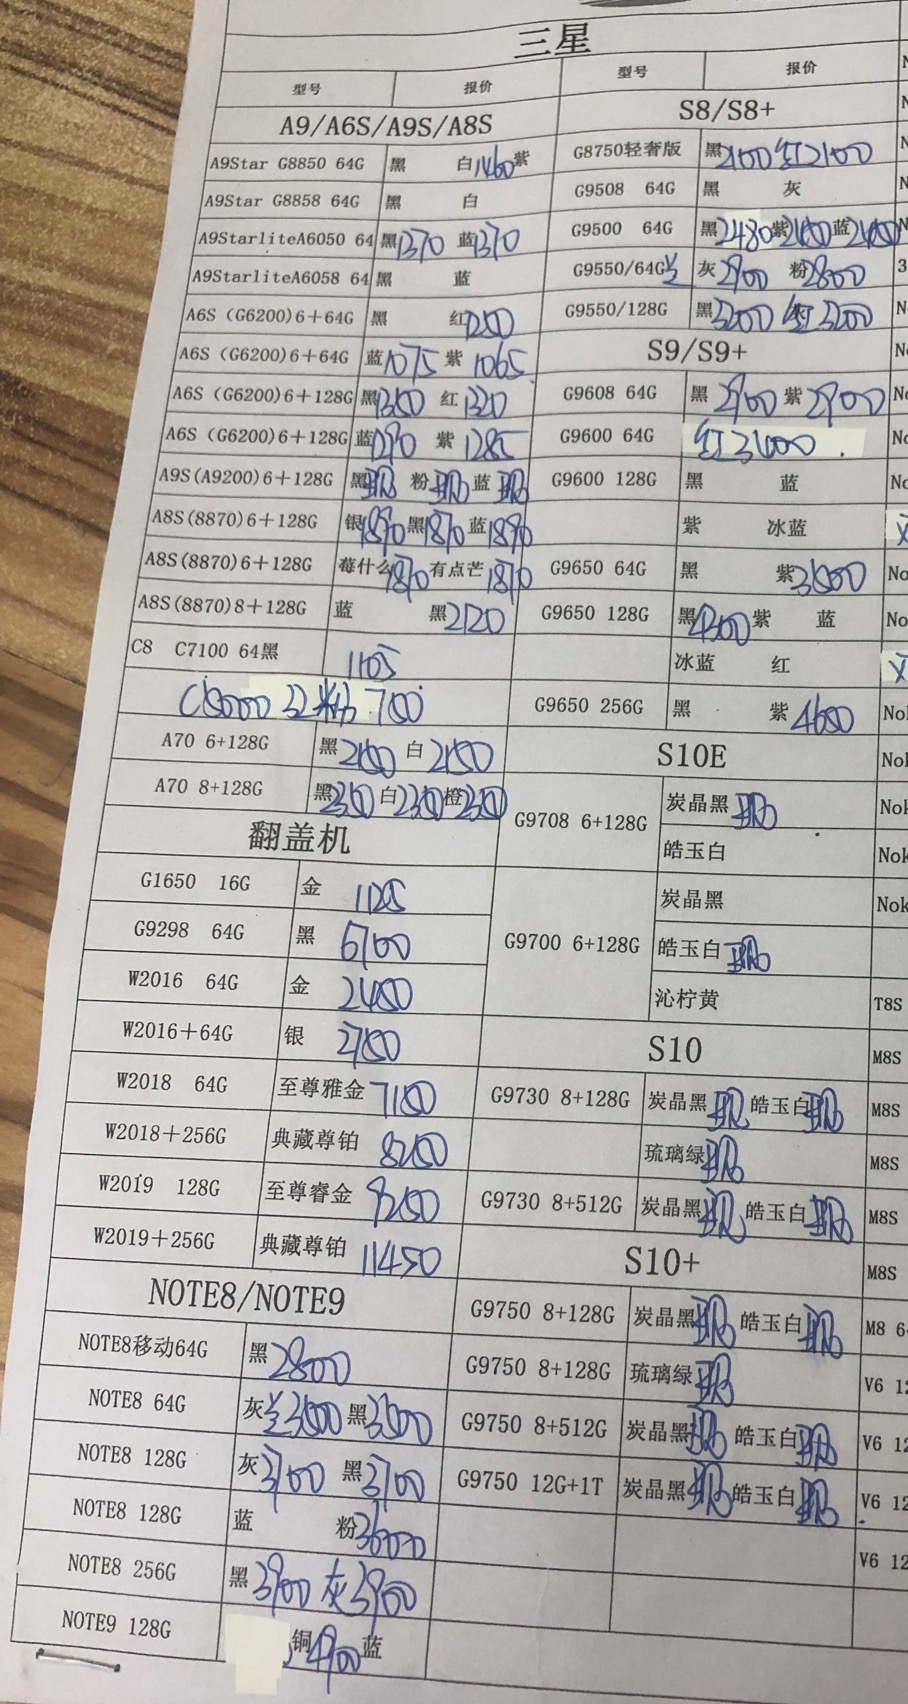 三星
型号 报价 型号 报价
A9/A6S/A9S/A8S S8/S8+
A9Star G8850 64G 黑 白1460紫 G8750轻奢版 黑2100红2100
A9Star G8858 64G 黑 白 G9508 64G 黑 灰
A9StarliteA6050 64 黑1370 蓝1370 G9500 64G 黑2480紫2450蓝2450
A9StarliteA6058 64 黑 蓝 G9550/64G 灰2900 粉2800
A6S (G6200)6+64G 黑 红1250 G9550/128G 黑3200 红3200
A6S (G6200)6+64G 蓝1075 紫1065 S9/S9+
A6S (G6200)6+128G 黑1350 红1320 G9608 64G 黑2900 紫2900
A6S (G6200)6+128G 蓝1290 紫1285 G9600 64G 红3000
A9S(A9200)6+128G 黑 粉 蓝 G9600 128G 黑 蓝
A8S(8870)6+128G 银1890黑1870蓝1890 紫 冰蓝
A8S(8870)6+128G 莓什么1870有点芒1870 G9650 64G 黑 紫3500
A8S(8870)8+128G 蓝 黑2120 G9650 128G 黑4300紫 蓝
C8 C7100 64黑 1105 冰蓝 红
C5000 粉 750 G9650 256G 黑 紫4650
A70 6+128G 黑2150 白2150 S10E
A70 8+128G 黑2350白2350橙2350 G9708 6+128G 炭晶黑
皓玉白
翻盖机
G1650 16G 金 1125 G9700 6+128G 炭晶黑
G9298 64G 黑 6700 皓玉白
W2016 64G 金 2450 沁柠黄 T8S
W2016+64G 银 2750 S10 M8S
W2018 64G 至尊雅金7150 G9730 8+128G 炭晶黑 皓玉白 M8S
W2018+256G 典藏尊铂 8250 琉璃绿 M8S
W2019 128G 至尊睿金 9250 G9730 8+512G 炭晶黑 皓玉白 M8S
W2019+256G 典藏尊铂 11450 S10+ M8S
NOTE8/NOTE9 G9750 8+128G 炭晶黑 皓玉白 M8 6
NOTE8移动64G 黑2800 G9750 8+128G 琉璃绿 V6 12
NOTE8 64G 灰 3500黑3500 G9750 8+512G 炭晶黑 皓玉白 V6 12
NOTE8 128G 灰3700 黑3700 G9750 12G+1T 炭晶黑 皓玉白 V6 12
NOTE8 128G 蓝 粉3600 V6 12
NOTE8 256G 黑3900 灰3900
NOTE9 128G 铜4900蓝